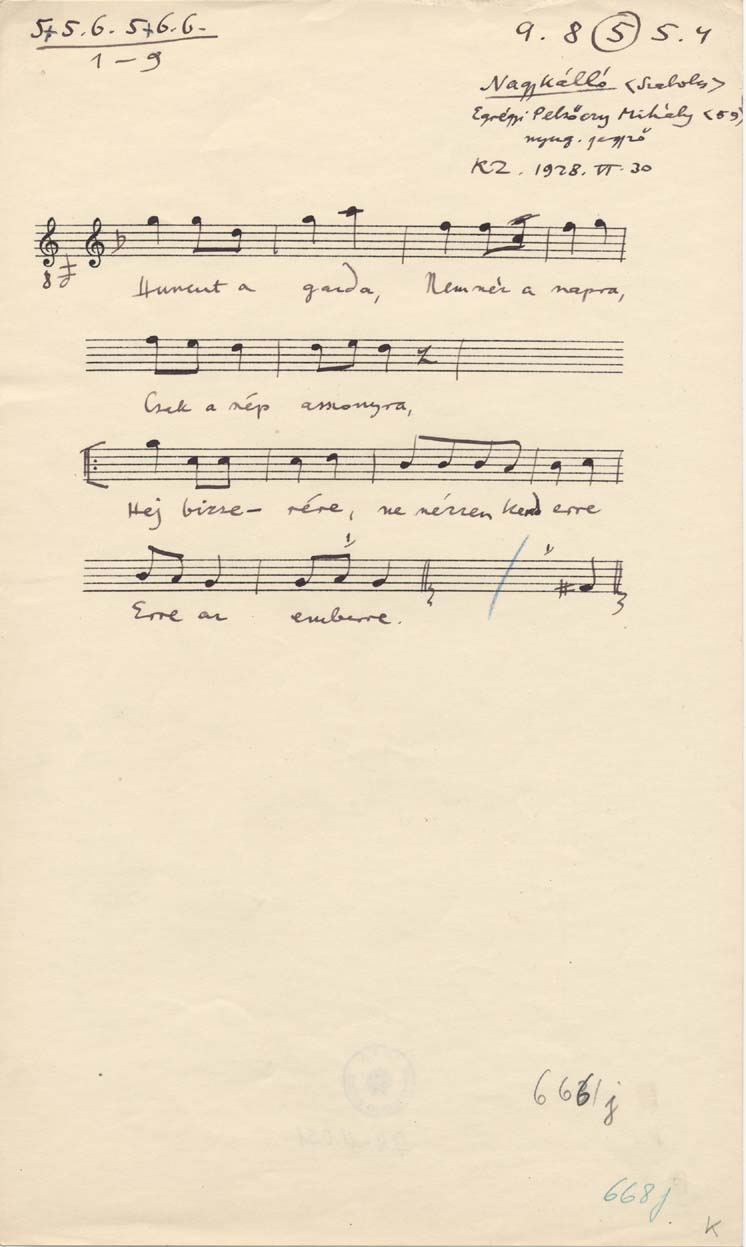 5+5.6. 5+6.6.
1-9
9. 8 (5) 5. 4
Nagykálló <Szabolcs>
Mihály <59>
nyug. jegyző
KZ. 1928. VI. 30
8
Huncut a garda, Nem néz a napra,
Csak a nép asszonyra,
Hej bizse- rére, ne nézzen kend erre
Erre az emberre.
668j
K